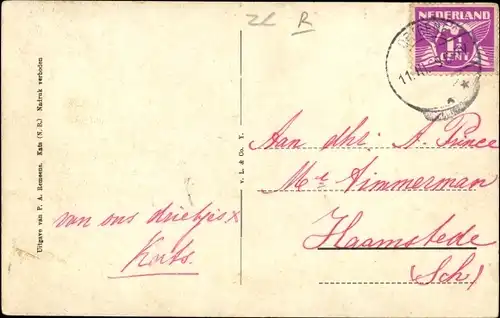 ZL R
NEDERLAND
1½
CENT
11.
Uitgave van P. A. Romeens, Kats (N. B.) Nadruk verboden
v. L. & Co. T.
van ons drietjes x
Kats.
Aan dhr. A. Prince
Mr Timmerman
Haamstede
(Sch)